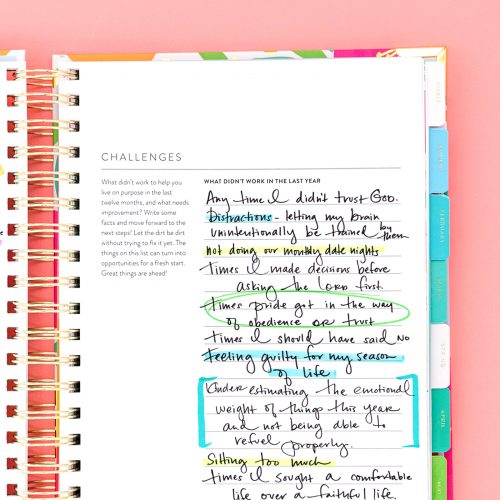 CHALLENGES
What didn't work to help you
live on purpose in the last
twelve months, and what needs
improvement? Write some
facts and move forward to the
next steps! Let the dirt be dirt
without trying to fix it yet. The
things on this list can turn into
opportunities for a fresh start.
Great things are ahead!
WHAT DIDN'T WORK IN THE LAST YEAR
Any time I didn't trust God.
Distractions - letting my brain
unintentionally be trained by them
not doing our monthly date nights
Times I made decisions before
asking the LORD first.
Times pride got in the way
of obedience OR trust
Times I should have said NO
Feeling guilty for my season
of life
Underestimating the emotional
weight of things this year
and not being able to
refuel properly.
Sitting too much
Times I sought a comfortable
life over a faithful life.
FEBRUARY
APRIL